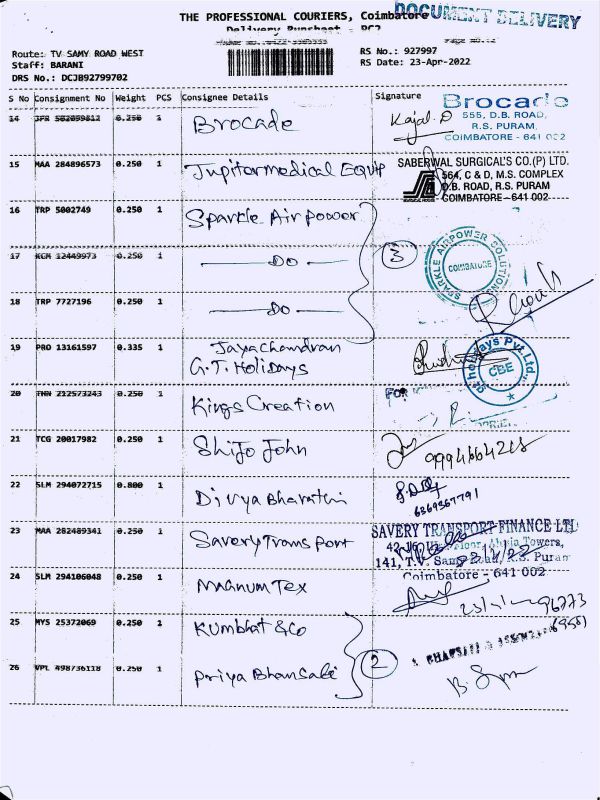 THE PROFESSIONAL COURIERS, Coimbatore
DOCUMENT DELIVERY
Delivery Runsheet - PC2
Route: TV SAMY ROAD WEST
Staff: BARANI
DRS No.: DCJB92799702
RS No.: 927997
RS Date: 23-Apr-2022
S No Consignment No Weight PCS Consignee Details Signature
14 0.250 1 Brocade Kajal.D
Brocade
555, D.B. ROAD,
R.S. PURAM,
COIMBATORE - 641 002
15 MAA 284896573 0.250 1 Jupitermedical Equip
SABERWAL SURGICAL'S CO.(P) LTD.
564, C & D, M.S. COMPLEX
D.B. ROAD, R.S. PURAM
COIMBATORE - 641 002
16 TRP 5002749 0.250 1 Sparkle Air power
17 KCM 12449973 0.250 1 DO
3
SPARKLE AIRPOWER SOLUTIONS
COIMBATORE
18 TRP 7727196 0.250 1 DO
19 PRO 13161597 0.335 1 Jayachandran
G.T. Holidays
holidays Pvt. Ltd.
CBE
20 212573243 0.250 1 Kings Creation
FOR
21 TCG 20017982 0.250 1 Shijo John
22 SLM 294072715 0.800 1 Divya Bharathi
6369367791
23 MAA 282489341 0.250 1 Savery Transport
SAVERY TRANSPORT FINANCE LTD
Towers,
141, T.V. Samy Road, R.S. Puram
Coimbatore - 641 002
24 SLM 294106048 0.250 1 Magnum Tex
25 MYS 25372069 0.250 1 Kumbhat & Co
26 VPL 498736118 0.250 1 Priya Bhansali
2